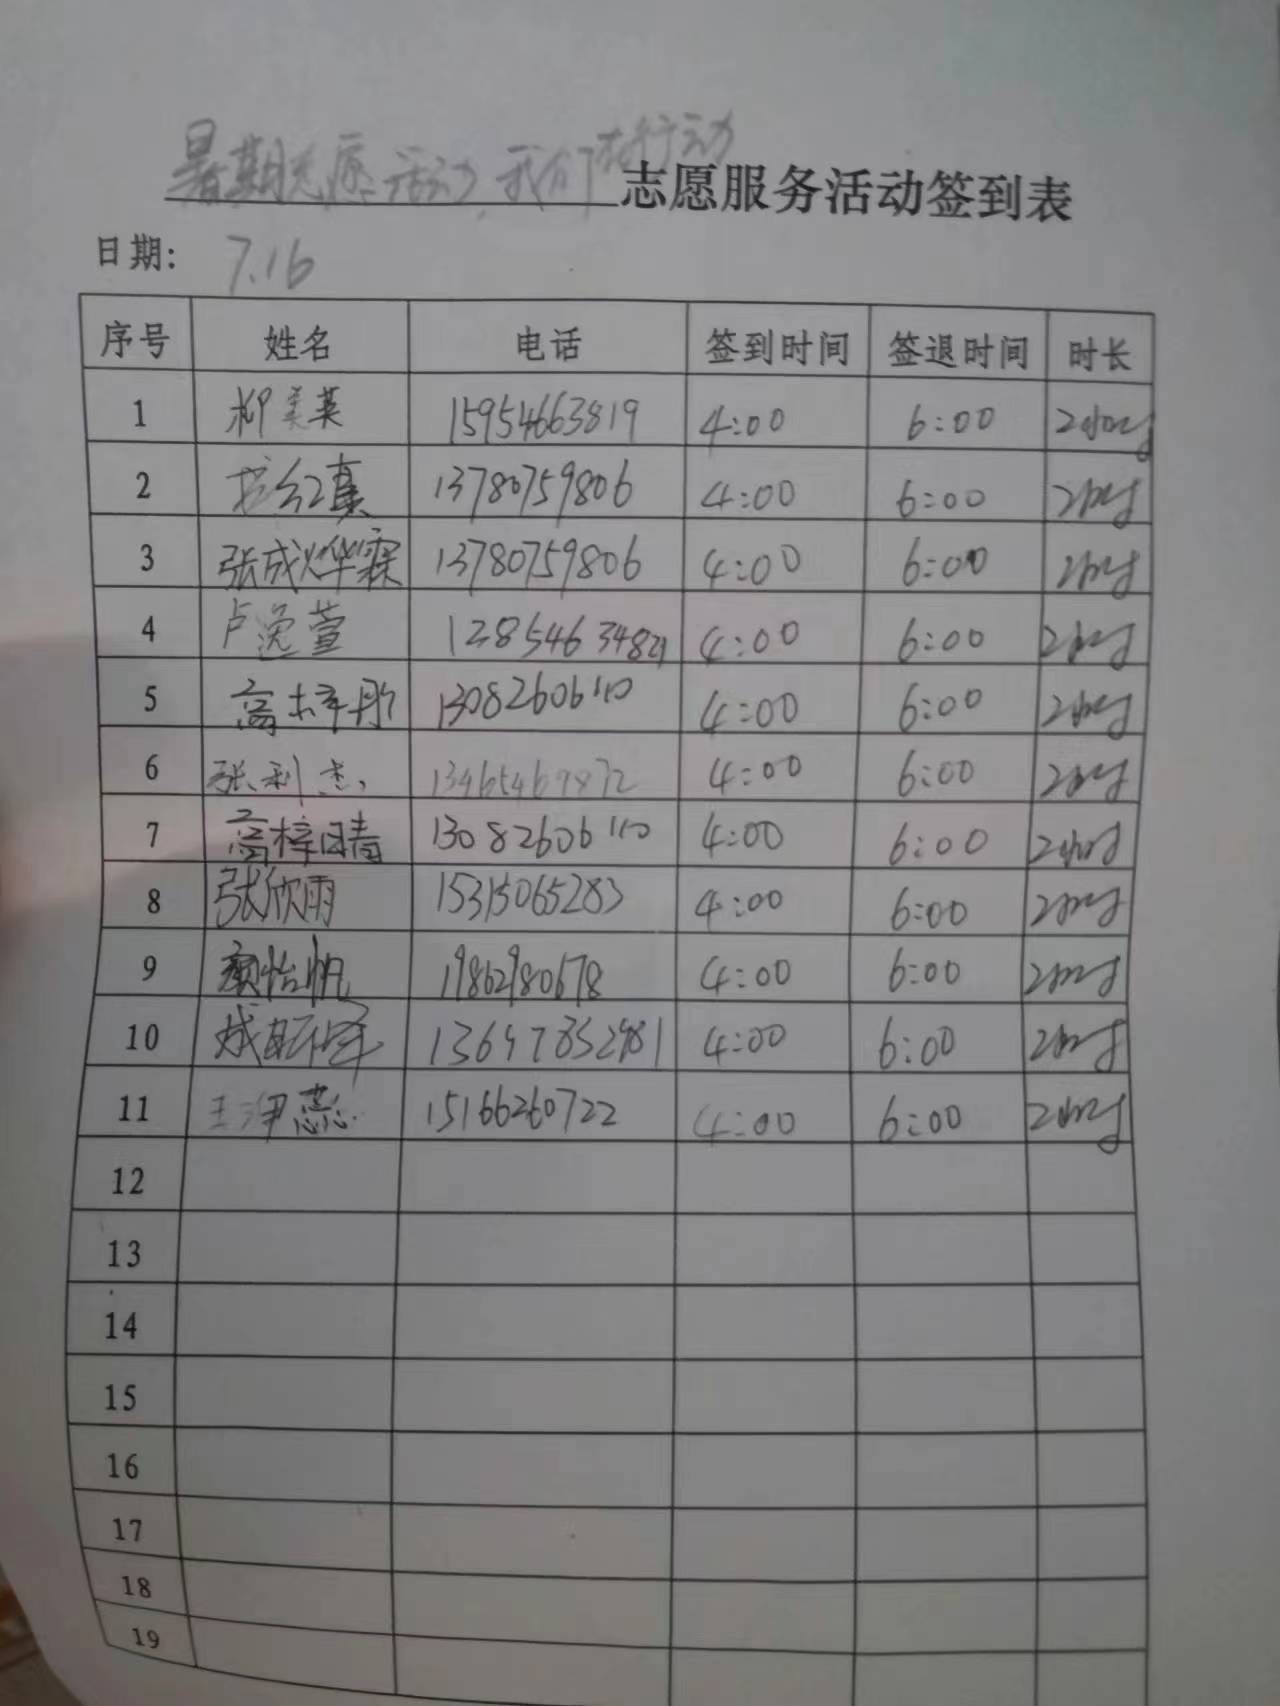 暑期志愿活动,我们在行动 志愿服务活动签到表
日期: 7.16
序号 姓名 电话 签到时间 签退时间 时长
1 柳美英 15954663819 4:00 6:00
2 红真 13780759806 4:00 6:00
3 张成烨霖 13780759806 4:00 6:00
4 卢逸萱 4:00 6:00
5 高梓彤 13082606110 4:00 6:00
6 张利杰 13465469872 4:00 6:00
7 高梓晴 13082606110 4:00 6:00
8 张欣雨 15315065283 4:00 6:00
9 颜怡帆 19862980678 4:00 6:00
10 4:00 6:00
11 王伊蕊 15166260722 4:00 6:00
12
13
14
15
16
17
18
19